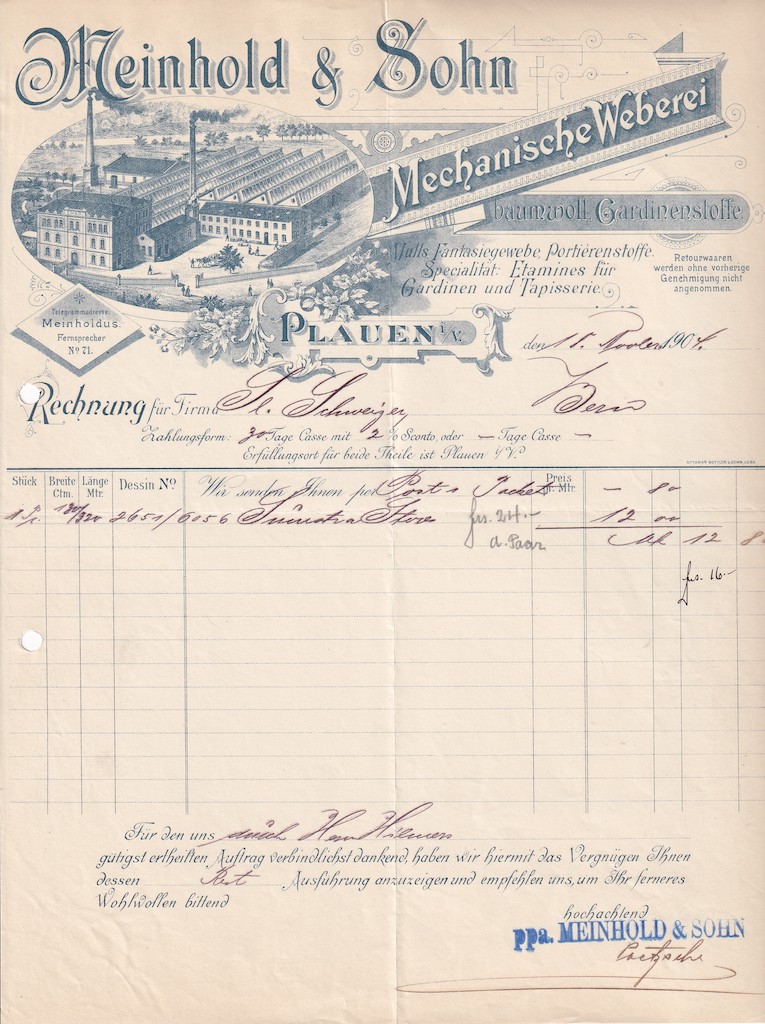 Meinhold & Sohn
Mechanische Weberei
baumwoll. Gardinenstoffe.
Mulls, Fantasiegewebe, Portièrenstoffe.
Specialität: Etamines für
Gardinen und Tapisserie.
Retourwaaren
werden ohne vorherige
Genehmigung nicht
angenommen.
Telegrammadresse:
Meinholdus.
Fernsprecher
No 71.
PLAUEN i/V.
den 1904.
Rechnung für Firma Schweizer Bern
Zahlungsform: 30 Tage Casse mit 2 % Sconto, oder – Tage Casse –
Erfüllungsort für beide Theile ist Plauen i/V.
Stück Breite Ctm. Länge Mtr. Dessin No. Wir senden Ihnen per Post 1 Packet Preis pr. Mtr – 80
1 P. 130/320 2651/6056 Store frs. 24.– 12 00
d. Paar M 12 8
frs. 16.–
Für den uns durch Herrn Hilmers
gütigst ertheilten Auftrag verbindlichst dankend, haben wir hiermit das Vergnügen Ihnen
dessen Rest Ausführung anzuzeigen und empfehlen uns, um Ihr ferneres
Wohlwollen bittend
hochachtend
ppa. MEINHOLD & SOHN